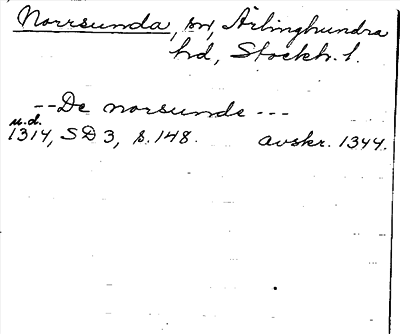 Norrsunda, sn, Ärlinghundra
hd, Stockh. l.
--De norsunde---
u.d.
1314, SD 3, s. 148. avskr. 1344.